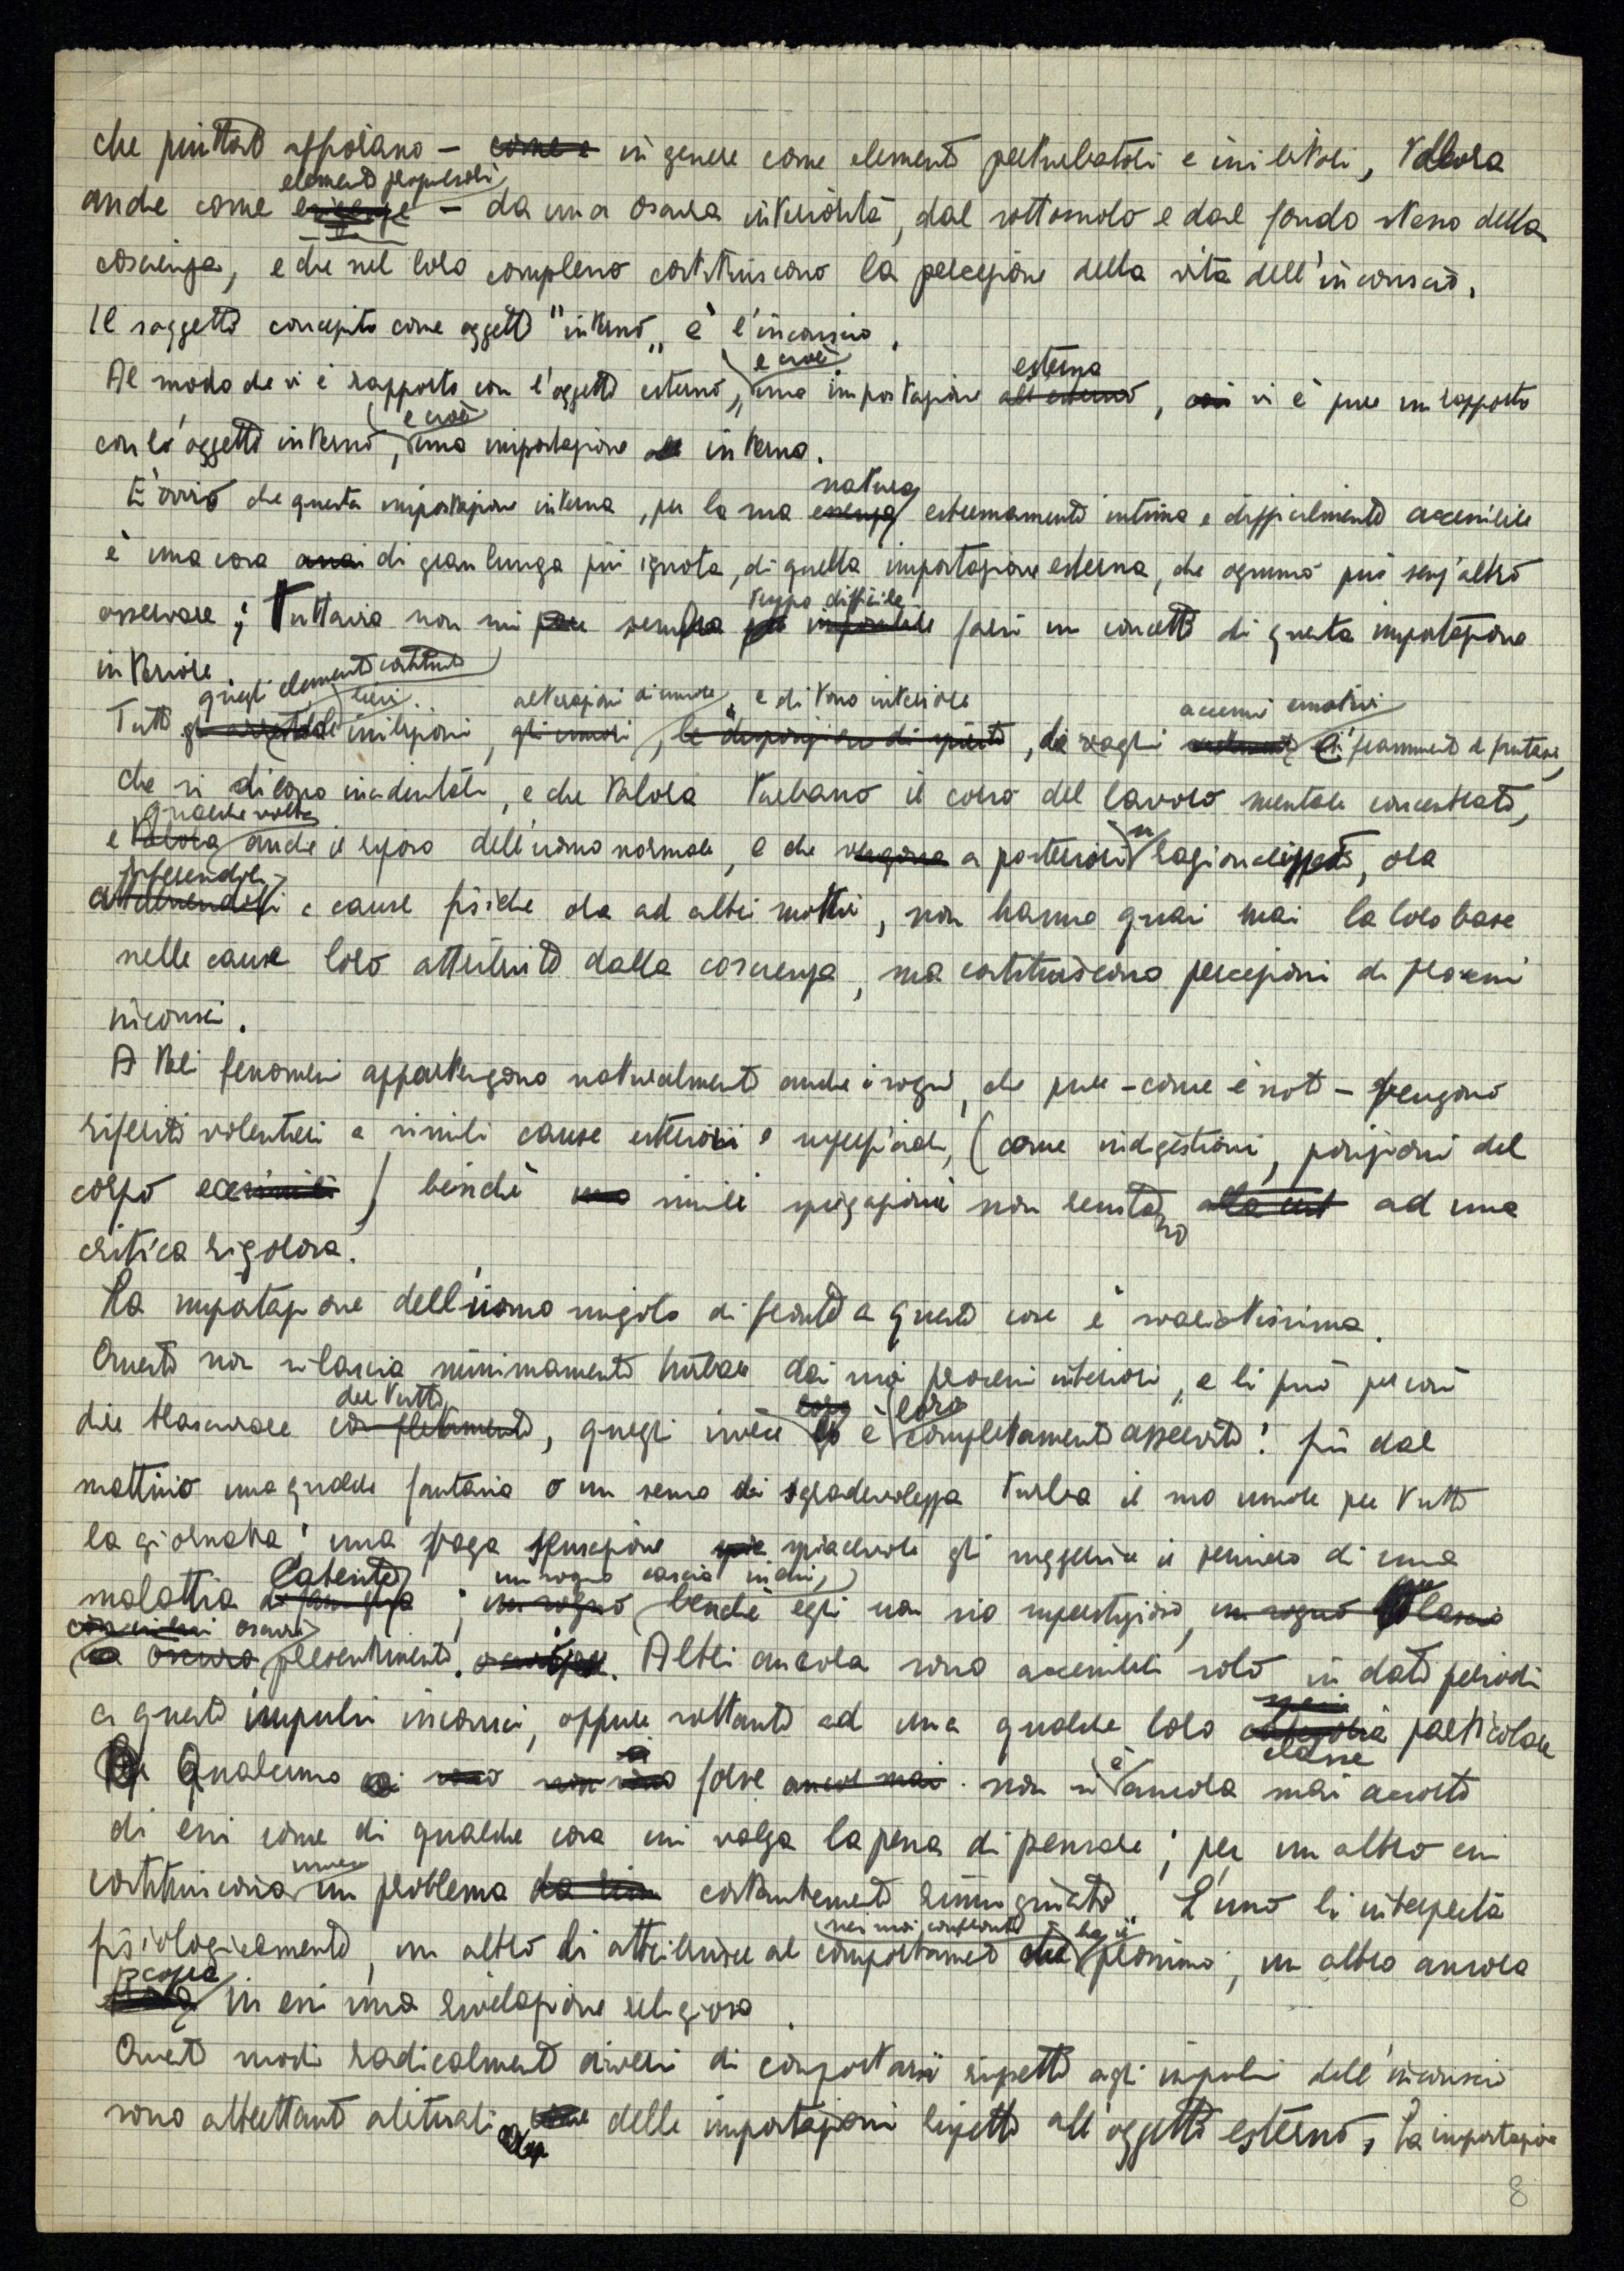 che piuttosto affiorano — come e in genere come elementi perturbatori e inibitori, talora
elementi propulsori
anche come — da una oscura interiorità, dal sottosuolo e dal fondo stesso della
coscienza, e che nel loro complesso costituiscono la percezione della vita dell'inconscio.
Il soggetto concepito come oggetto "interno" è l'inconscio.
e cioè esterna
Al modo che vi è rapporto con l'oggetto esterno, una impostazione all'esterno, così vi è pure un rapporto
e cioè
con l'oggetto interno, una impostazione interna.
natura
E' ovvio che questa impostazione interna, per la sua essenza estremamente intima e difficilmente accessibile
è una cosa assai di gran lunga più ignota, di quella impostazione esterna, che ognuno può senz'altro
troppo difficile
osservare; Tuttavia non mi pare sembra impossibile farsi un concetto di questa impostazione
interiore
quegli elementi costituiti
lievi alterazioni di umore, e di tono interiore accenni emotivi
Tutti inibizioni, gli umori, le disposizioni di spirito, vaghi frammenti di fantasie,
che si dicono incidentali, e che talora turbano il corso del lavoro mentale concentrato,
qualche volta
e talora anche il riposo dell'uomo normale, e che vengono a posteriori razionalizzati, ora
riferendoli
attribuendoli a cause fisiche ora ad altri motivi, non hanno quasi mai la loro base
nelle cause loro attribuite dalla coscienza, ma costituiscono percezioni di processi
inconsci.
A tali fenomeni appartengono naturalmente anche i sogni, che pure — come è noto — vengono
riferiti volentieri a simili cause esteriori e superficiali, (come indigestioni, posizioni del
corpo e simili) benché simili spiegazioni non resistano ad una
critica rigorosa.
La impostazione dell'uomo singolo di fronte a queste cose è svariatissima.
Questo non si lascia minimamente turbare dai suoi processi interiori, e li può per così
del tutto loro
dire trascurare completamente, quegli invece è completamente asservito: fin dal
mattino una qualche fantasia o un senso di sgradevolezza turba il suo umore per tutta
la giornata; una vaga sensazione spiacevole gli suggerisce il pensiero di una
latente un sogno lascia in lui,
malattia ; un sogno benché egli non sia superstizioso, un sogno lascia
oscuri
oscuro presentimenti. Altri ancora sono accessibili solo in dati periodi
a questi impulsi inconsci, oppure soltanto ad una qualche loro categoria particolare
classe
Qualcuno forse ancor mai non si è ancora mai accorto
di essi come di qualche cosa cui valga la pena di pensare; per un altro essi
invece
costituiscono un problema costantemente rimuginato. L'uno li interpreta
nei suoi confronti ha il
fisiologicamente, un altro li attribuisce al comportamento che prossimo, un altro ancora
scopre
trova in essi una rivelazione religiosa.
Questi modi radicalmente diversi di comportarsi rispetto agli impulsi dell'inconscio
sono altrettanto abituali delle impostazioni rispetto all'oggetto esterno, La impostazione
8